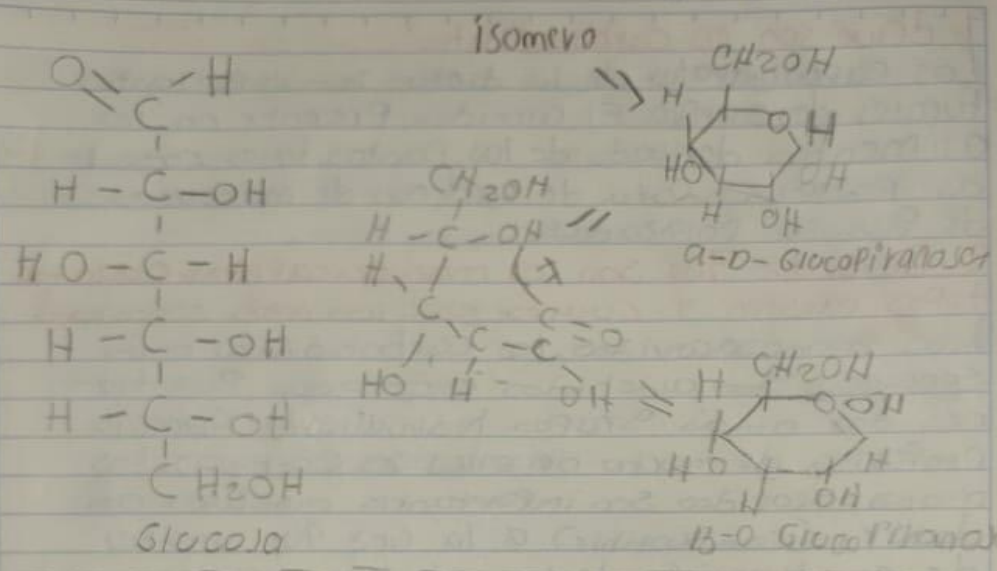 isomero
O H
C
H - C - OH
HO - C - H
H - C - OH
H - C - OH
CH2OH
Glucosa
CH2OH
H - C - OH
H
C C = O
C - C
HO H OH
CH2OH
H O H
HO OH
H OH
a-D-Glucopiranosa
CH2OH
H O OH
HO H
H OH
B-D